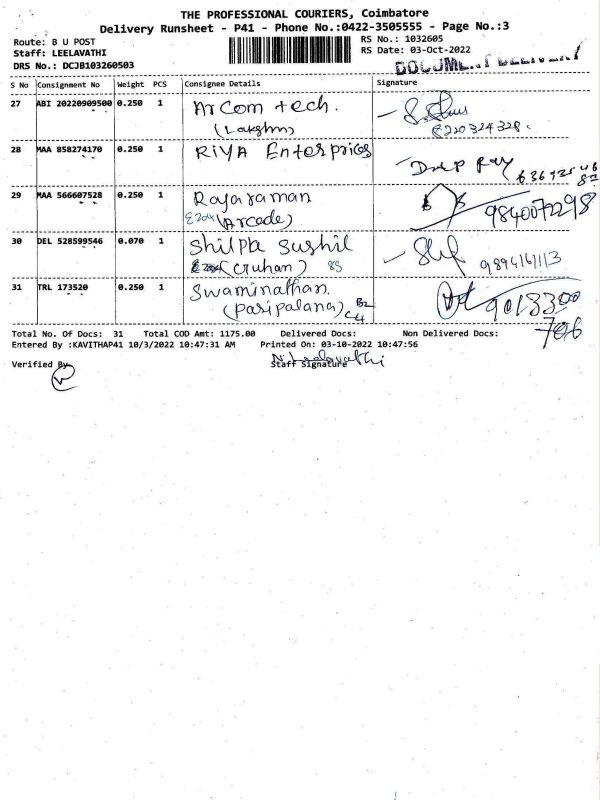 THE PROFESSIONAL COURIERS, Coimbatore
Delivery Runsheet - P41 - Phone No.:0422-3505555 - Page No.:3
Route: B U POST
RS No.: 1032605
Staff: LEELAVATHI
RS Date: 03-Oct-2022
DRS No.: DCJB103260503
DOCUMENT DELIVERY
S No Consignment No Weight PCS Consignee Details Signature
27 ABI 20220909500 0.250 1 Arcom tech.
(Lakshm)
8220324328.
28 MAA 858274170 0.250 1 Riya Enterprices
29 MAA 566607528 0.250 1 Rajaraman
E204 (Arcade) 9840072298
30 DEL 528599546 0.070 1 Shilpa Sushil
(Gruhan)
31 TRL 173520 0.250 1 Swaminathan.
(Paripalana) B2
C4
9013300
706
Total No. Of Docs: 31 Total COD Amt: 1175.00 Delivered Docs: Non Delivered Docs:
Entered By :KAVITHAP41 10/3/2022 10:47:31 AM Printed On: 03-10-2022 10:47:56
Verified By
Staff Signature